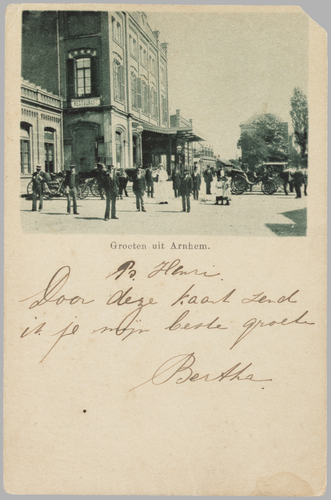 Groeten uit Arnhem.
Henri.
Door deze kaart zend
ik je mijn beste groeten
Bertha